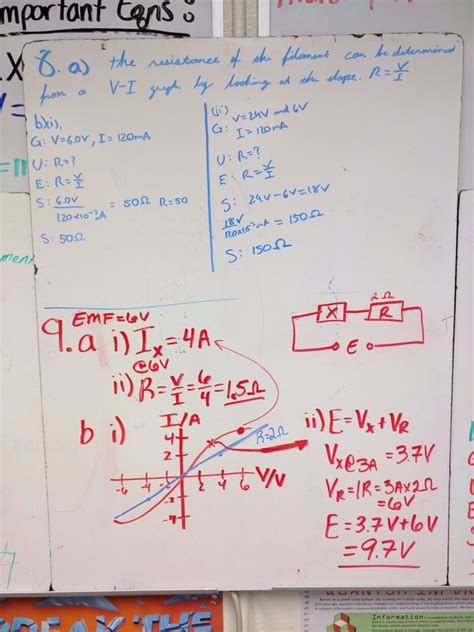 mportant Eqns:
8. a) the resistance of the filament can be determined
from a V-I graph by looking at the slope. R = V/I
b)i),
G: V=6.0V, I=120mA
U: R=?
E: R=V/I
S: 6.0V / 120x10⁻³A = 50Ω R=50
S: 50Ω
(ii)
V=24V and 6V
G: I=120mA
U: R=?
E: R=V/I
S: 24V-6V=18V
18V / 120x10⁻³A = 150Ω
S: 150Ω
EMF=6V
9.a i) Ix=4A
@6V
ii) R=V/I=6/4=1.5Ω
X 2Ω R
E
b i) I/A
4
2
-6 -4 -2 2 4 6 V/V
-2
-4
R=2Ω
ii) E=Vx+VR
Vx@3A=3.7V
VR=IR=3Ax2Ω
=6V
E=3.7V+6V
=9.7V
BREAK THE
QUANTUM INFOR
Information